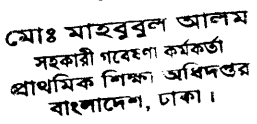 মোঃ মাহবুবুল আলম
সহকারী গবেষণা কর্মকর্তা
প্রাথমিক শিক্ষা অধিদপ্তর
বাংলাদেশ, ঢাকা।